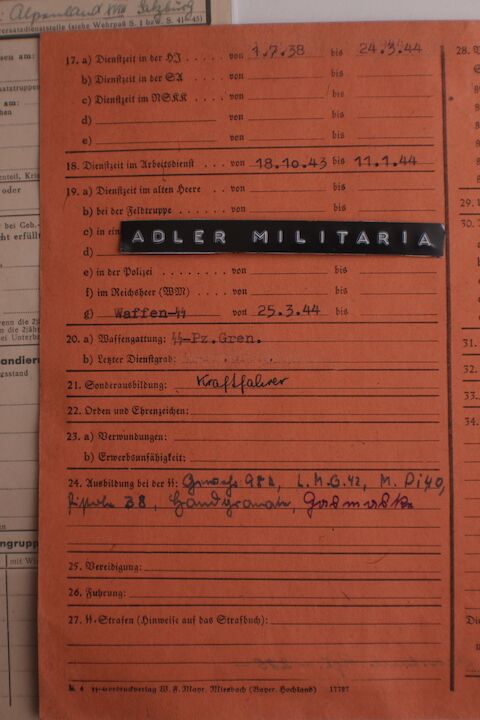 Alpenland XVIII Salzburg
ersatzdienststelle (siehe Wehrpaß S. 1 bzw. S. 41-45)
17. a) Dienstzeit in der HJ . . . . . von 1.7.38 bis 24.3.44
b) Dienstzeit in der SA . . . . . von bis
c) Dienstzeit im NSKK . . . . . von bis
d) von bis
e) von bis
18. Dienstzeit im Arbeitsdienst . . . von 18.10.43 bis 11.1.44
19. a) Dienstzeit im alten Heere . . . von bis
b) bei der Feldtruppe . . . . . . von bis
c) in ein
ADLER MILITARIA
d)
e) in der Polizei . . . . . . . . von bis
f) im Reichsheer (WM) . . . . von bis
g) Waffen-SS von 25.3.44 bis
20. a) Waffengattung: SS-Pz.Gren.
b) Letzter Dienstgrad:
21. Sonderausbildung: Kraftfahrer
22. Orden und Ehrenzeichen:
23. a) Verwundungen:
b) Erwerbsunfähigkeit:
24. Ausbildung bei der SS: Gewehr 98k, L.M.G.42, M. Pi40,
Pistole 38, Handgranate, Gasmaske
25. Vereidigung:
26. Führung:
27. SS-Strafen (Hinweise auf das Strafbuch):
Nr. 4 SS-Vordruckverlag W. F. Mayr, Miesbach (Bayer. Hochland) 17727
28.
29.
30.
31.
32.
33.
34.